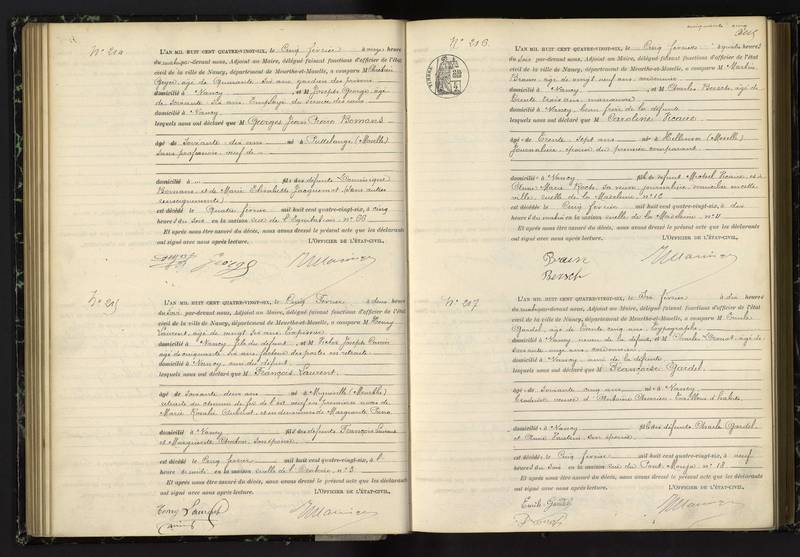 cinquante cinq
N° 204
L'AN MIL HUIT CENT QUATRE-VINGT-SIX, le Cinq février à onze heures
du matin par-devant nous, Adjoint au Maire, délégué faisant fonctions d'officier de l'état
civil de la ville de Nancy, département de Meurthe-et-Moselle, a comparu M
âgé de quarante six ans gardien des prisons
domicilié à Nancy, et M Joseph George âgé
de soixante six ans Employé
domicilié à Nancy
lesquels nous ont déclaré que M Georges Jean Pierre Bomans
âgé de Soixante dix ans né à Puttelange (Moselle)
Sans profession veuf de
domicilié à fils des défunts Dominique
Bomans et de Marie Elisabeth Jacquemot (sans autres
renseignements)
est décédé le Quatre février mil huit cent quatre-vingt-six, à cinq
heures du soir en la maison rue de l'Equitation n° 66
Et après nous être assuré du décès, nous avons dressé le présent acte que les déclarants
ont signé avec nous après lecture. L'OFFICIER DE L'ÉTAT-CIVIL,
George
N° 205
L'AN MIL HUIT CENT QUATRE-VINGT-SIX, le Cinq Février à deux heures
du soir par-devant nous, Adjoint au Maire, délégué faisant fonctions d'officier de l'état
civil de la ville de Nancy, département de Meurthe-et-Moselle, a comparu M Henry
Laurent, âgé de vingt six ans Tapissier
domicilié à Nancy fils du défunt, et M Victor Joseph
âgé de cinquante six ans facteur des postes en retraite
domicilié à Nancy ami du défunt
lesquels nous ont déclaré que M François Laurent
âgé de soixante deux ans né à
retraité du chemin de fer de l'Est veuf en premières noces de
Marie Rosalie et en deuxièmes de Marguerite
domicilié à Nancy fils des défunts François Laurent
et Marguerite son épouse
est décédé le Cinq février mil huit cent quatre-vingt-six, à
heure en la maison ruelle de n° 3
Et après nous être assuré du décès, nous avons dressé le présent acte que les déclarants
ont signé avec nous après lecture. L'OFFICIER DE L'ÉTAT-CIVIL,
Henry Laurent
N° 206
L'AN MIL HUIT CENT QUATRE-VINGT-SIX, le Cinq février à quatre heures
du soir par-devant nous, Adjoint au Maire, délégué faisant fonctions d'officier de l'état
civil de la ville de Nancy, département de Meurthe-et-Moselle, a comparu M Martin
Braun âgé de vingt neuf ans
domicilié à Nancy, et M Charles Bersch âgé de
trente trois ans manœuvre
domicilié à Nancy beau frère de la défunte
lesquels nous ont déclaré que M Caroline
âgé de Trente sept ans né à (Moselle)
Journalière épouse du premier comparant
domicilié à Nancy fille de défunt Michel et de
Anne Marie Koch sa veuve journalière domiciliée en cette
ville, ruelle de la n° 12
est décédé le Cinq février mil huit cent quatre-vingt-six, à dix
heures du matin en la maison ruelle de la n° 11
Et après nous être assuré du décès, nous avons dressé le présent acte que les déclarants
ont signé avec nous après lecture. L'OFFICIER DE L'ÉTAT-CIVIL,
Braun
Bersch
N° 207
L'AN MIL HUIT CENT QUATRE-VINGT-SIX, le Six février à dix heures
du matin par-devant nous, Adjoint au Maire, délégué faisant fonctions d'officier de l'état
civil de la ville de Nancy, département de Meurthe-et-Moselle, a comparu M Emile
Gardel, âgé de trente cinq ans Typographe
domicilié à Nancy neveu de la défunte, et M Charles âgé de
soixante ans
domicilié à Nancy ami de la défunte
lesquels nous ont déclaré que M Françoise Gardel
âgé de Soixante cinq ans né à Nancy
veuve d'Antoine Tailleur d'habits
domicilié à Nancy fille des défunts Charles Gardel
et Anne son épouse
est décédé le Cinq février mil huit cent quatre-vingt-six, à neuf
heures du soir en la maison rue du Pont Mouja n° 13
Et après nous être assuré du décès, nous avons dressé le présent acte que les déclarants
ont signé avec nous après lecture. L'OFFICIER DE L'ÉTAT-CIVIL,
Emile Gardel